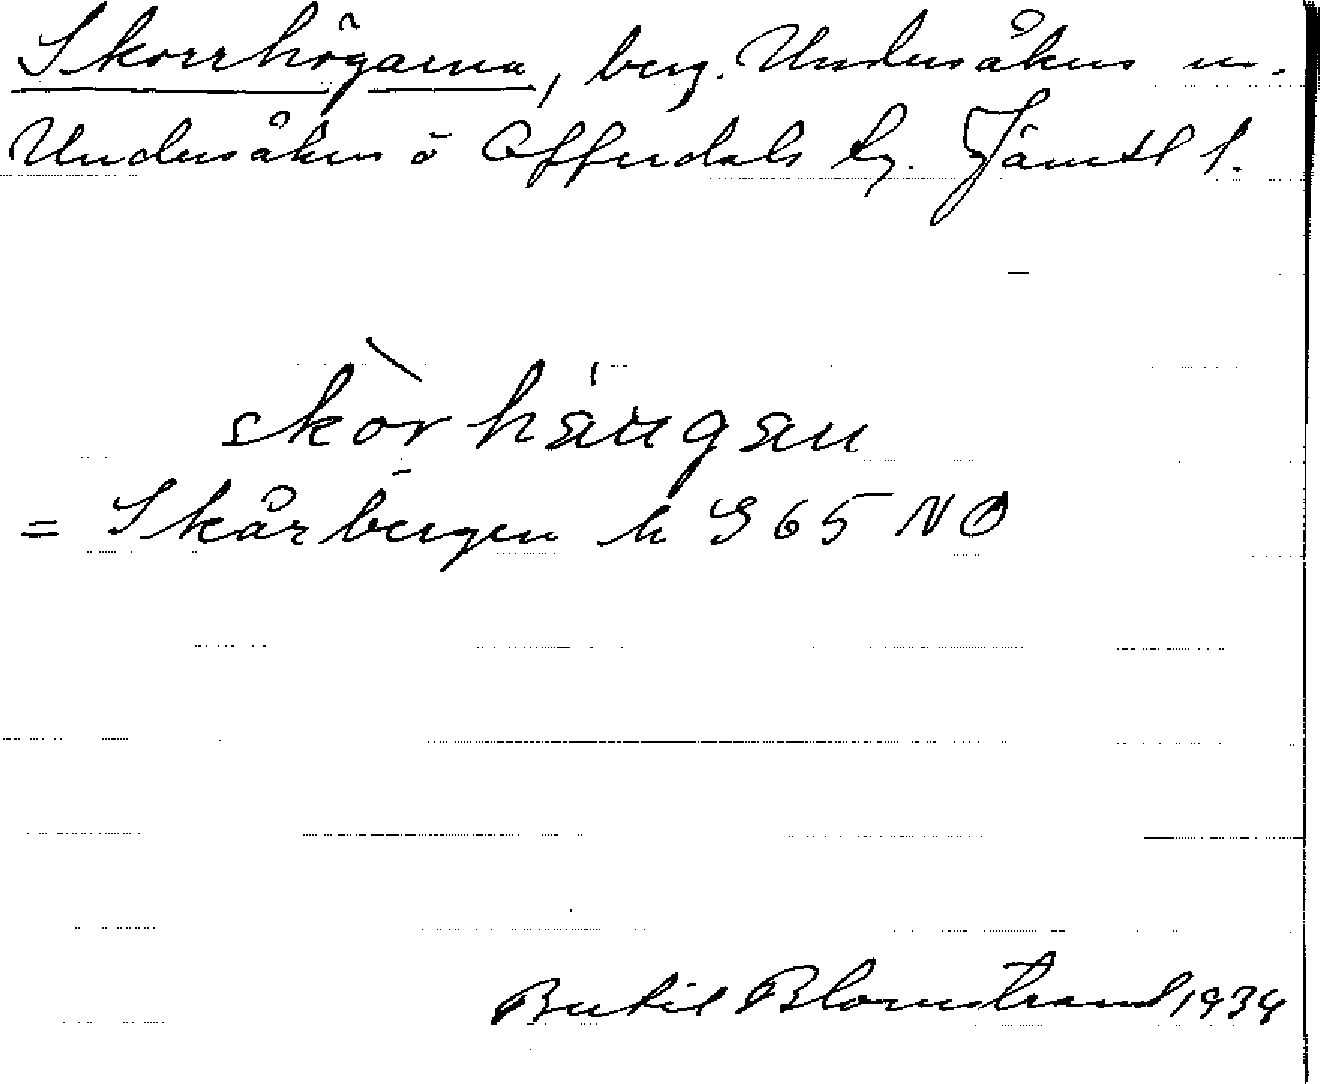 Skorrhögarna, berg. Undersåkers sn.
Undersåkers o Offerdals tg. Jämtl l.
skòrhäugan
= Skårbergen h 965 NO
Bertil Blomstrand 1934